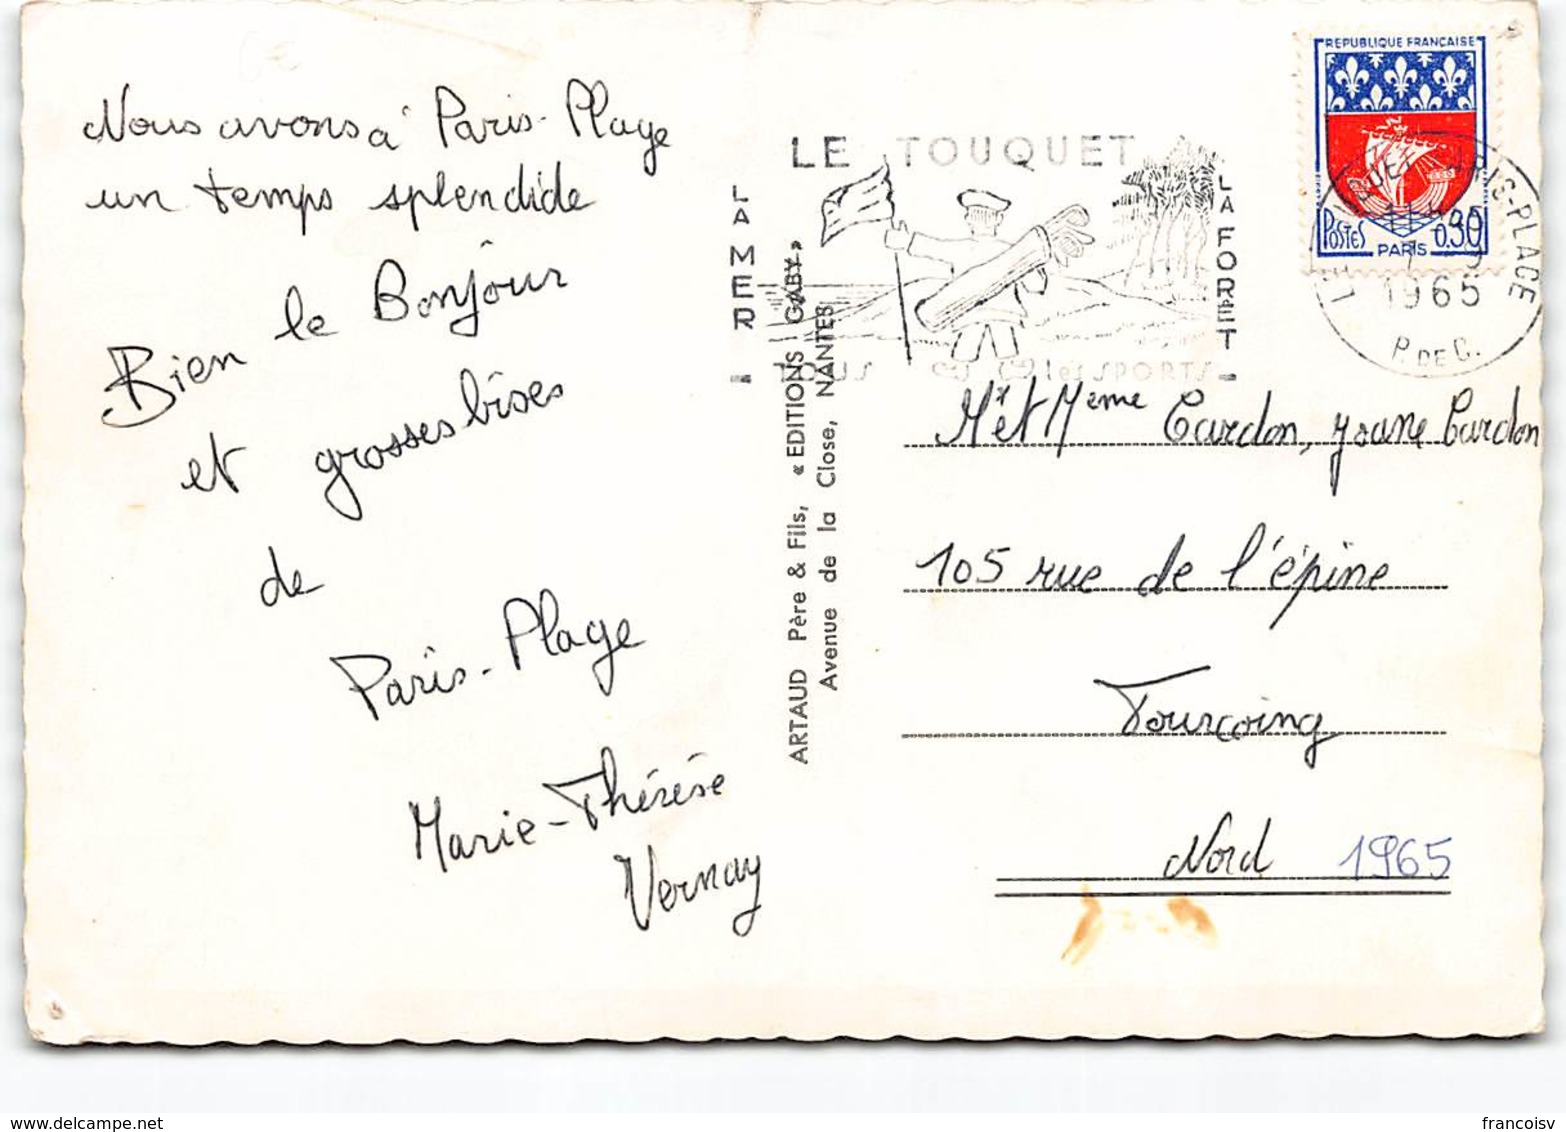 Nous avons à Paris-Plage
un temps splendide
Bien le Bonjour
et grosses bises
de
Paris-Plage
Marie-Thérèse
Vernay
ARTAUD Père & Fils, « EDITIONS GABY »
Avenue de la Close, NANTES
LE TOUQUET
LA MER
LA FORET
TOUS les SPORTS
REPUBLIQUE FRANÇAISE
POSTES
PARIS
0.30
PARIS-PLAGE
1965
P. DE C.
Mr et Meme Cardon, Cardon
105 rue de l'épine
Tourcoing
Nord 1965
delcampe.net
francoisv